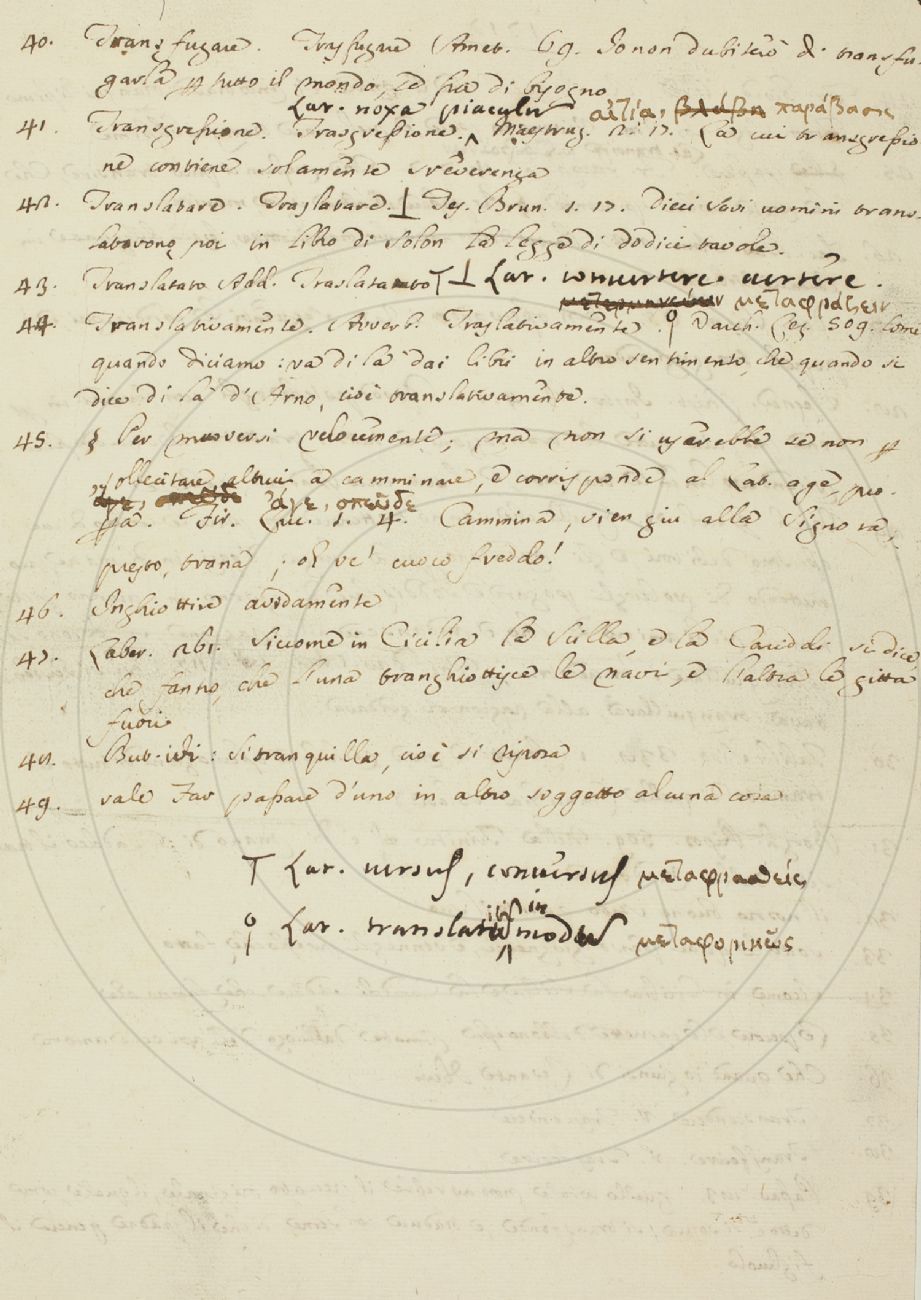 40. Transfugare. Trasfugare Amet. 69. Io non dubiterò di transfu-
garla p tutto il mondo, se fia di bisogno
Lat. noxa piaculū αἰτία, βλάβη παράβασις
41. Transgressione. Trasgressione. Maestruz. 2. 17. La cui transgressio
ne contiene solamente irreverenza
42. Translatare. Traslatare ⊥ Tes. Brun. 1. 17. Dieci savi uomini trans-
latarono poi in libro di Solon la legge di dodici tavole.
43. Translatato Add. Traslatato T ⊥ Lat. convertere. vertere.
μεταφράζειν
44. Translativamente. Avverb. Traslativamente. ϙ Dant. 309. Come
quando diciamo: va di là dai libri in altro sentimento, che quando si
dice di là d'Arno, cioè translativamente.
45. § Per muoversi velocemente; ma non si userebbe se non p
sollecitare altrui a camminare, e corrisponde al Lat. age, pro-
ἄγε, σπεῦδε
pera. Fir. Luc. 1. 4. Cammina, vien giu alla Signora,
presto, trana; oh ve' cuoco freddo!
46. Inghiottire avidamente
47. Laber. 261. siccome in Cicilia la Scilla, e la Cariddi si dice,
che fanno, che l'una tranghiottisce le navi, e l'altra le gitta
fuori
48. But. ivi: si tranquilla, cioè si riposa
49. vale Far passare d'uno in altro soggetto alcuna cosa
T Lat. versus, conversus μεταφρασθείς
ϙ Lat. modū μεταφορικῶς.